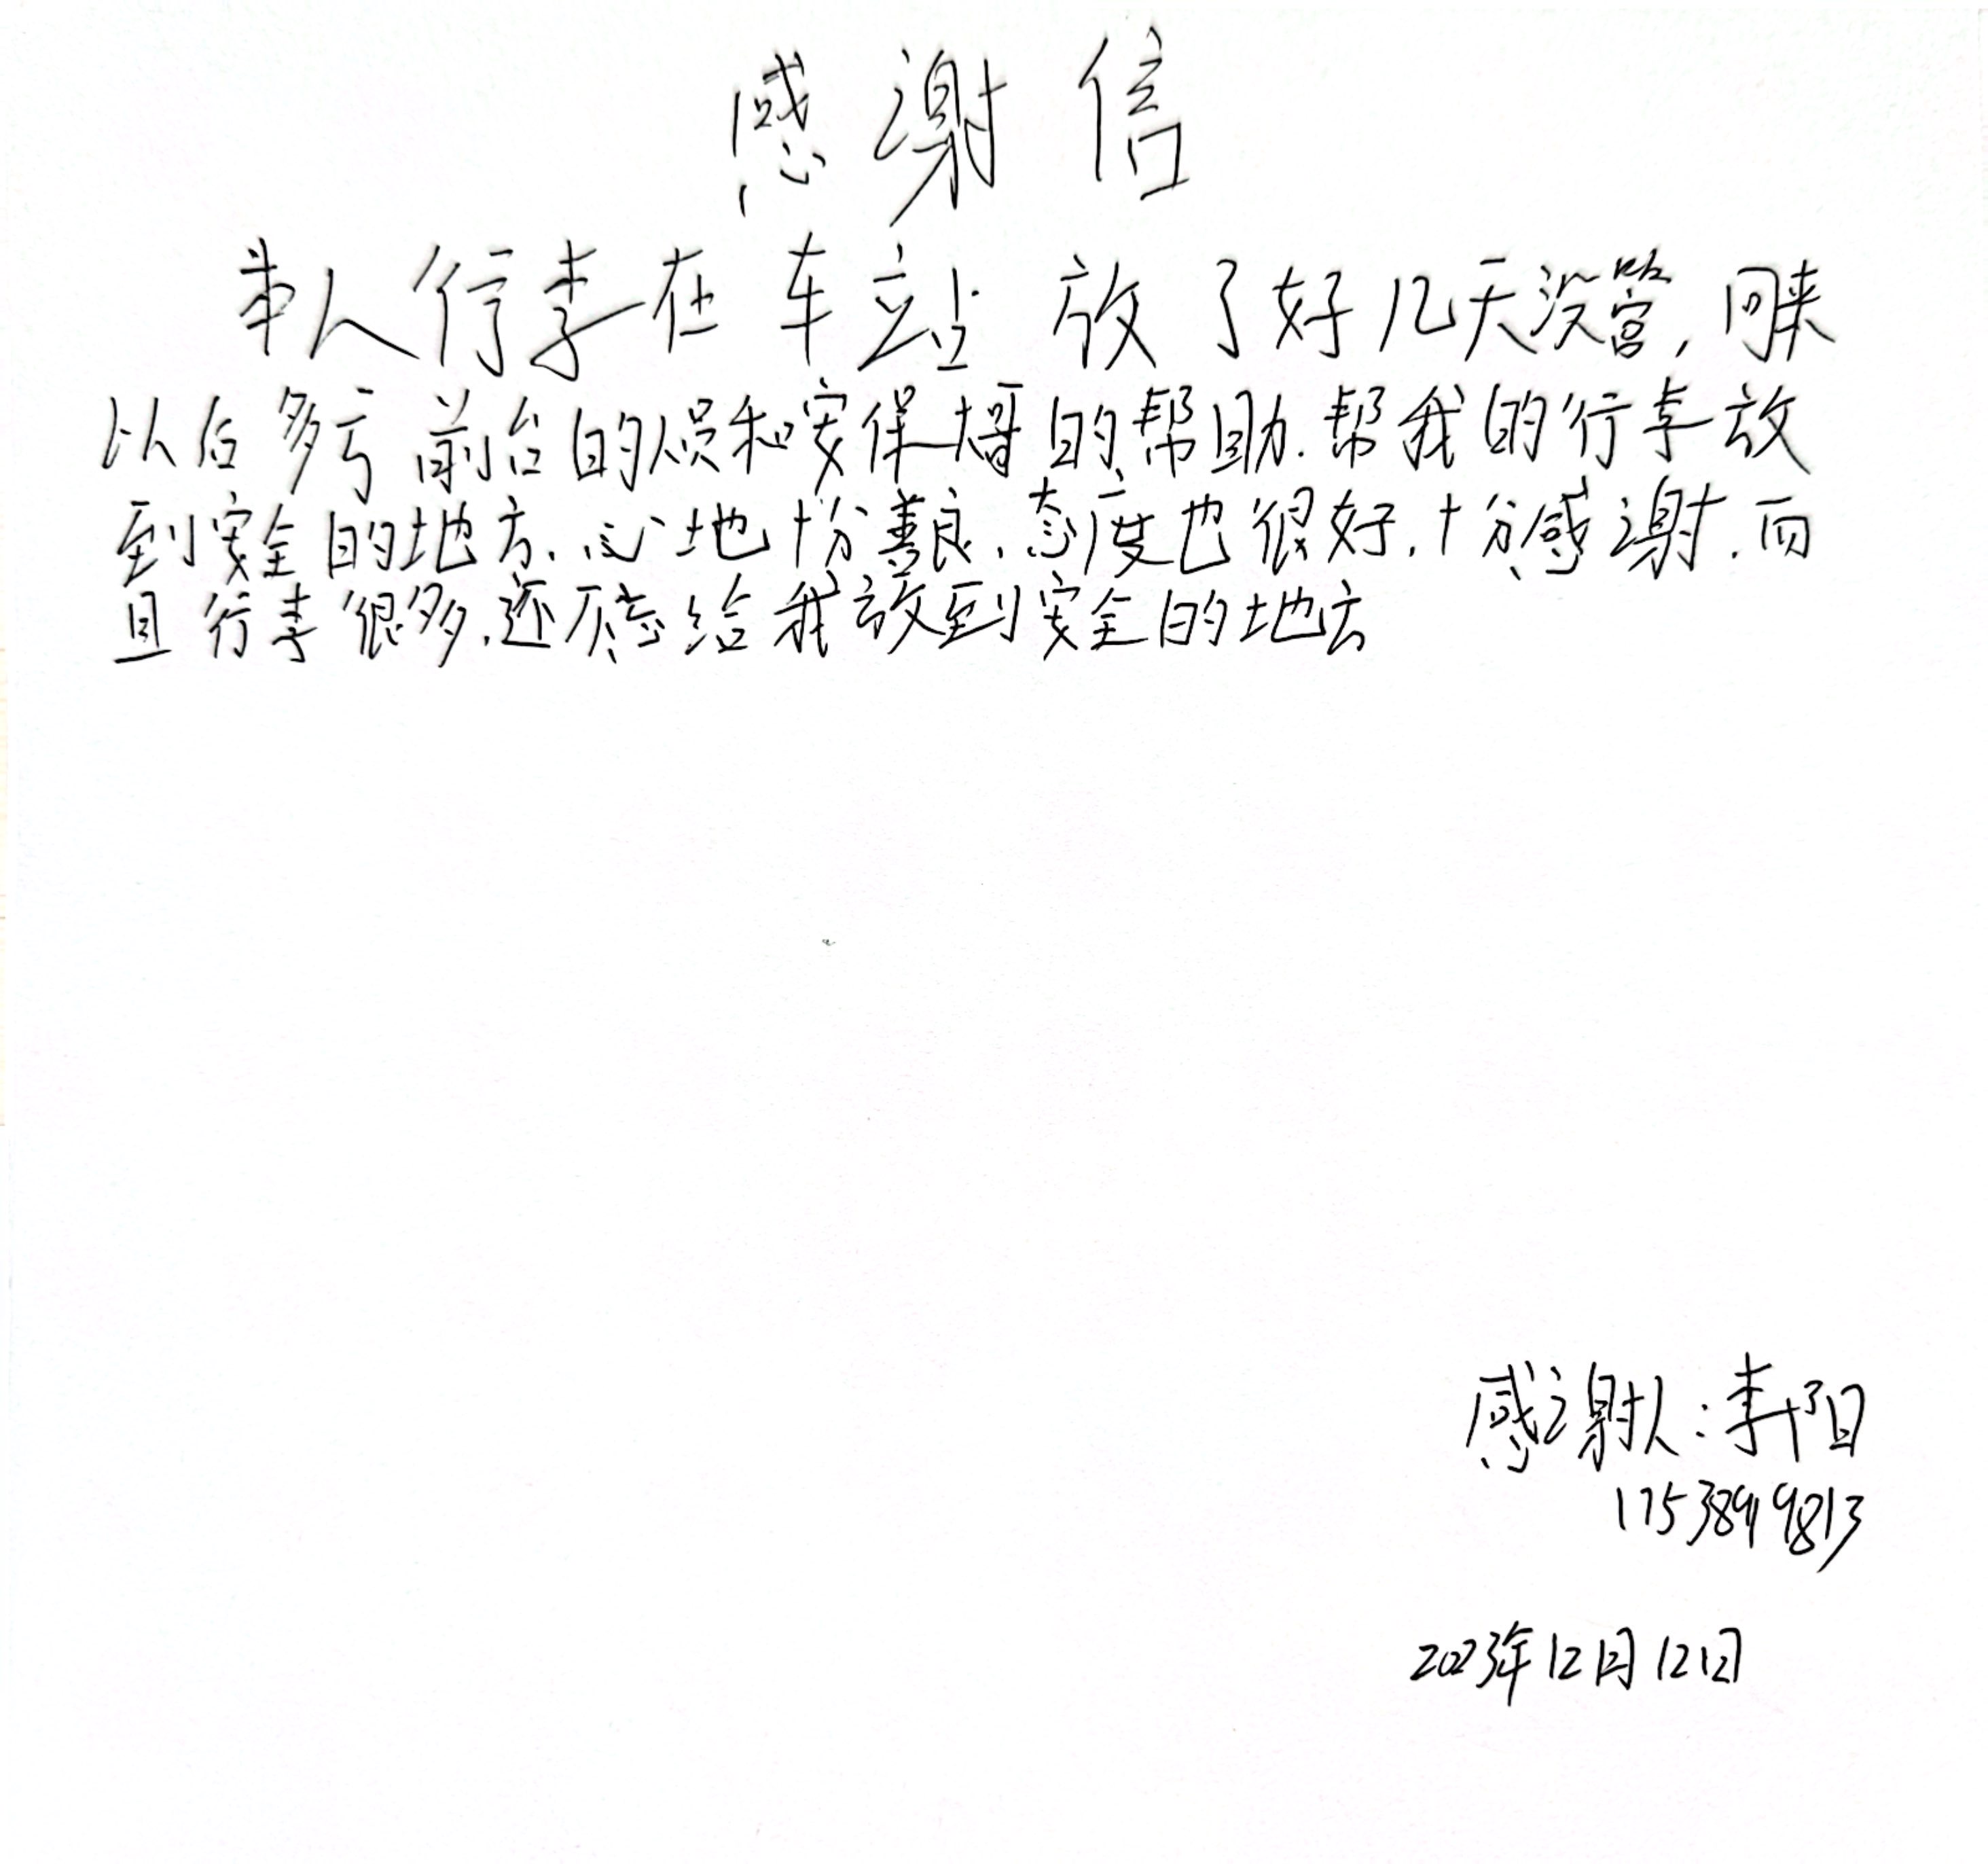 感谢信
本人行李在车站放了好几天没管,回来
以后多亏前台的人员和安保大哥的帮助.帮我的行李放
到安全的地方.心地十分善良.态度也很好.十分感谢.而
且行李很多.还不忘给我放到安全的地方
感谢人:李阳
17538919813
2023年12月12日